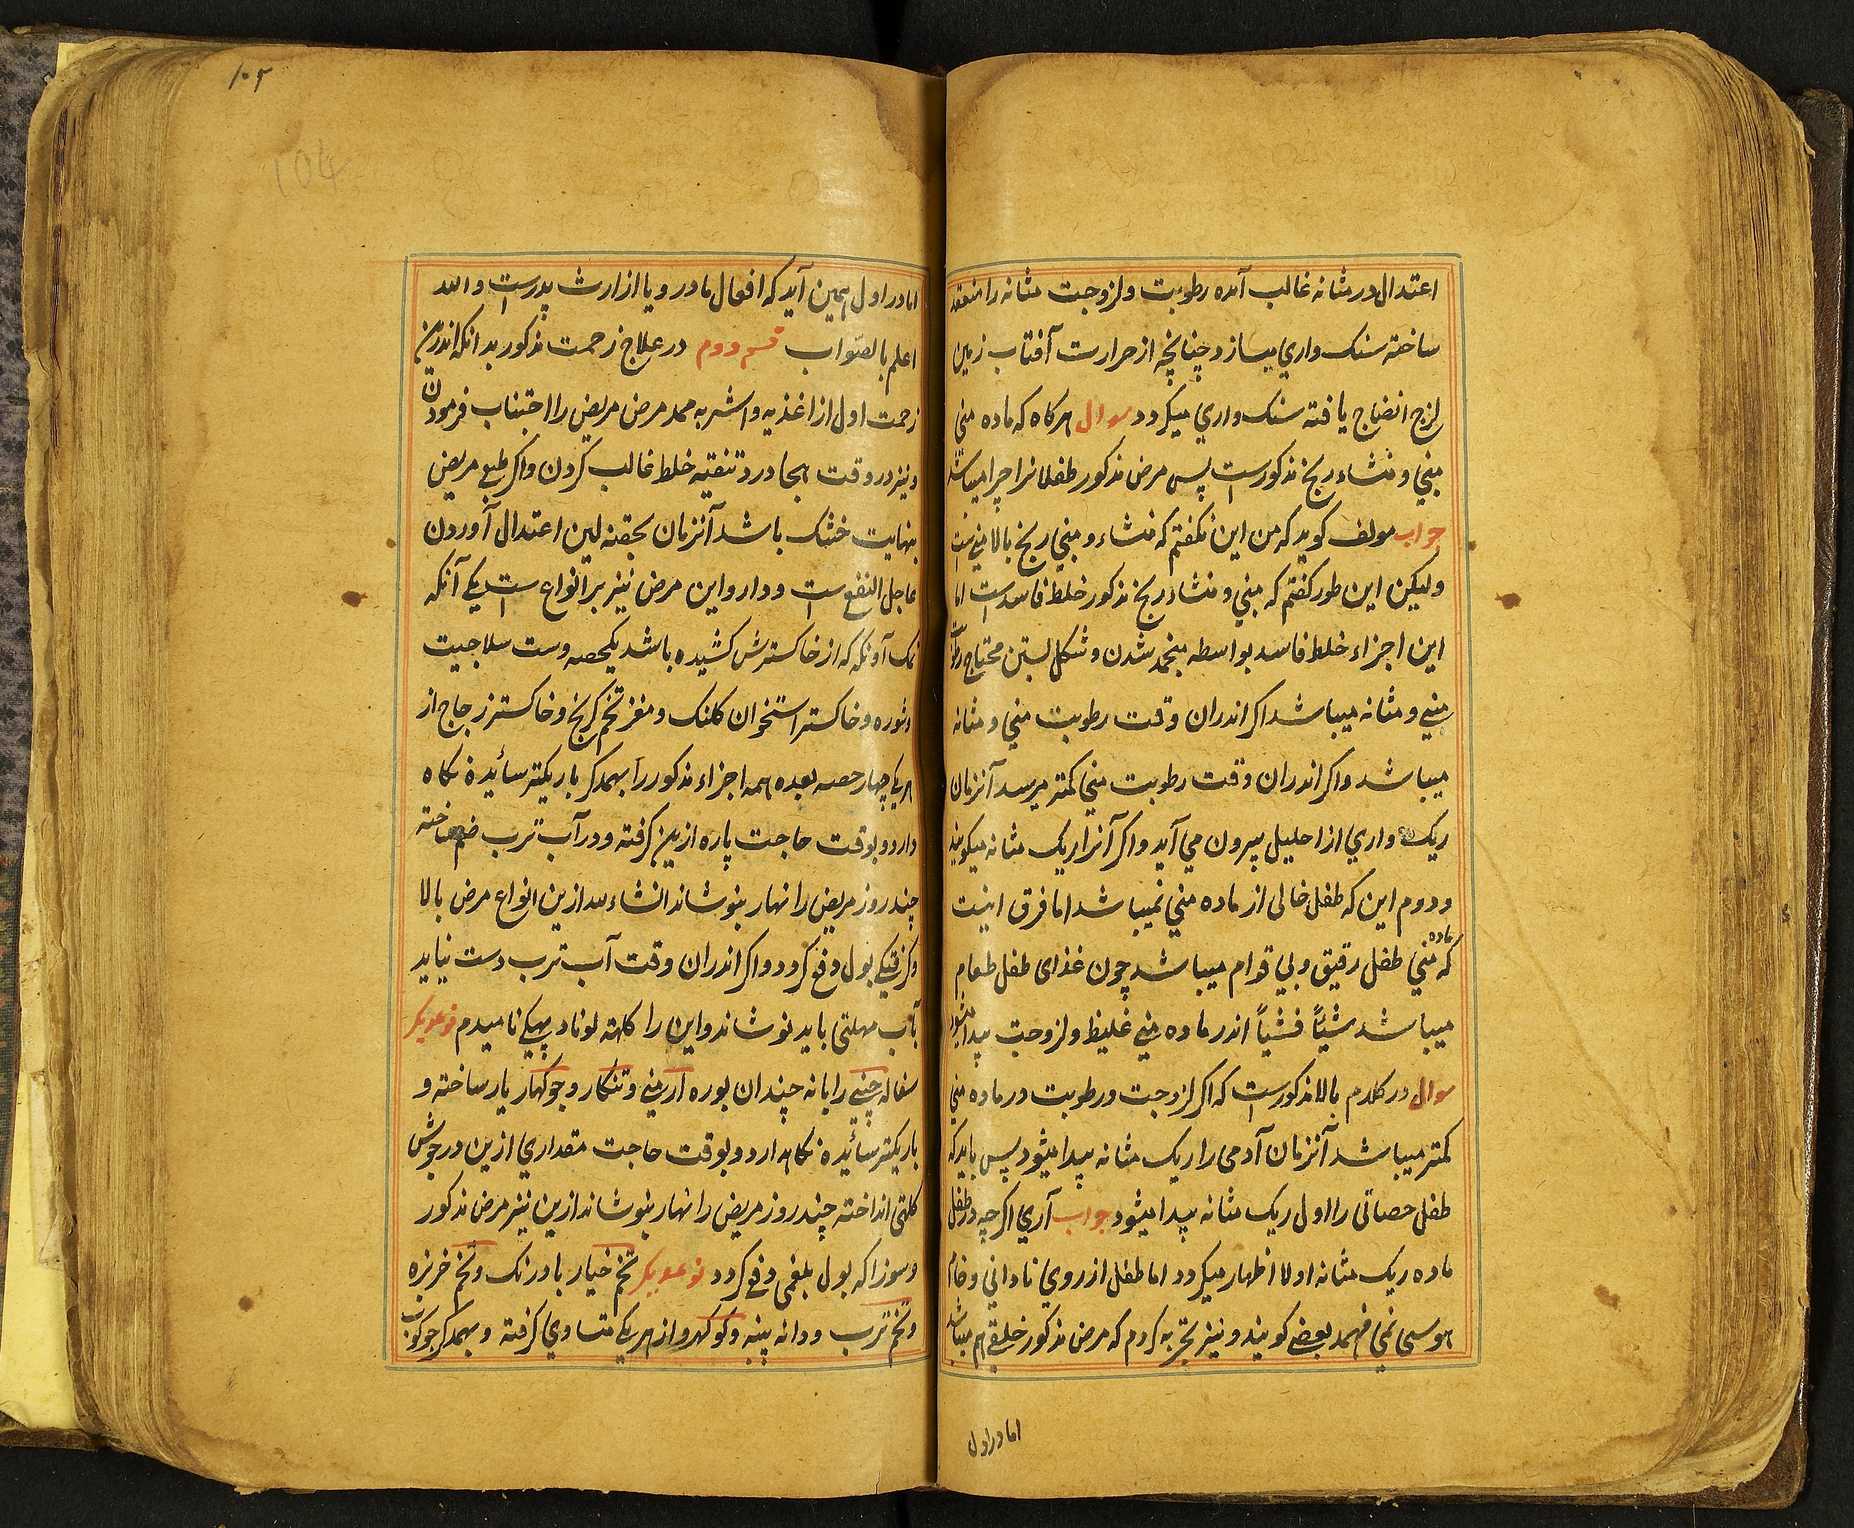 اعتدال در مثانه غالب آمده رطوبت ولزوجت مثانه را منعقد
ساخته سنک واري میسازد چنانچه از حرارت آفتاب زمین
لزج انضاج یافته سنک واري میکردد سوال هرکاه که ماده مني
مبني و منشاء ریخ مذکورست پس مرض مذکور طفلانرا چرا میباشد
جواب مولف کوید که من این نکفتم که منشاء و مبني ریخ بالا منیست
ولیکن این طور کفتم که مبني و منشاء ریخ مذکور خلط فاسدست اما
این اجزاء خلط فاسد بواسطه منجمد شدن و شکل بستن محتاج رطوبت
مني و مثانه میباشد اکر اندران وقت رطوبت مني و مثانه
میباشد واکر اندران وقت رطوبت مني کمتر میرسد آنزمان
ریک واري از احلیل بیرون مي آید واکر آنرا ریک مثانه میکویند
ودوم این که طفل خالی از ماده مني نمیباشد اما فرق اینست
که ماده مني طفل رقیق وبي قوام میباشد چون غذای طفل طعام
میباشد شیئاً فشیئاً اندر ماده مني غلیظ ولزوجت پیدا میشود
سوال در کلام بالا مذکورست که اکر لزوجت ورطوبت در ماده مني
کمتر میباشد آنزمان آدمی را ریک مثانه پیدا میشود پس باید که
طفل حصاتی را اول ریک مثانه پیدا میشود جواب آري اکرچه در طفل
ماده ریک مثانه اولا اظهار میکردد اما طفل از روي ناداني وخام
هوسی نمي فهمد بعضے کویند ونیز تجربه کردم که مرض مذکور خلیقے هم میباشد
اما در اول
۱۰۴
104
اما در اول همین آید که افعال مادر ویا از ارث پدرست والله
اعلم بالصواب قسم دوم در علاج زحمت مذکور بدانکه اندرین
زحمت اول از اغذیه واشربه ممد مرض مریض را اجتناب فرمودن
ونیز در وقت هجا درد تنقیه خلط غالب کردن واکر طبع مریض
بنهایت خشک باشد آنزمان بحقنه لین اعتدال آوردن
عاجل النفع ست ودارو این مرض نیز بر انواع ست یکے آنکه
نمک آونکه که از خاکسترش کشیده باشد یکحصه وست سلاجیت
وشوره وخاکستر استخوان کلنک ومغز تخم کرنج وخاکستر زجاج از
هریکے چهار حصه بعده همه اجزاء مذکور را بهمدکر باریکتر سائیده نکاه
دارد وبوقت حاجت پاره ازین کرفته ودر آب ترب ضم ساخته
چند روز مریض را نهار بنوشاند انشاء الله ازین انواع مرض بالا
وکرفتکے بول دفع کردد واکر اندران وقت آب ترب دست نیاید
بآب مهلتی باید نوشاند واین را کلهته لوناد پهیکے نامیدم نوعدیکر
سفاله چینے را بانه چندان بوره ارمینے وتنکار وجوکهار یار ساخته و
باریکتر سائیده نکاهدارد وبوقت حاجت مقداري ازین در جوش
کلتی انداخته چند روز مریض را نهار بنوشاند ازین نیز مرض مذکور
وسوزاکه بول بلغمی دفع کردد نوعدیکر تخم خیار بادرنک وتخم خربزه
وتخم ترب ودانه پنبه وکوکهرو از هریکے متساوي کرفته وبهمدکر جوکوب